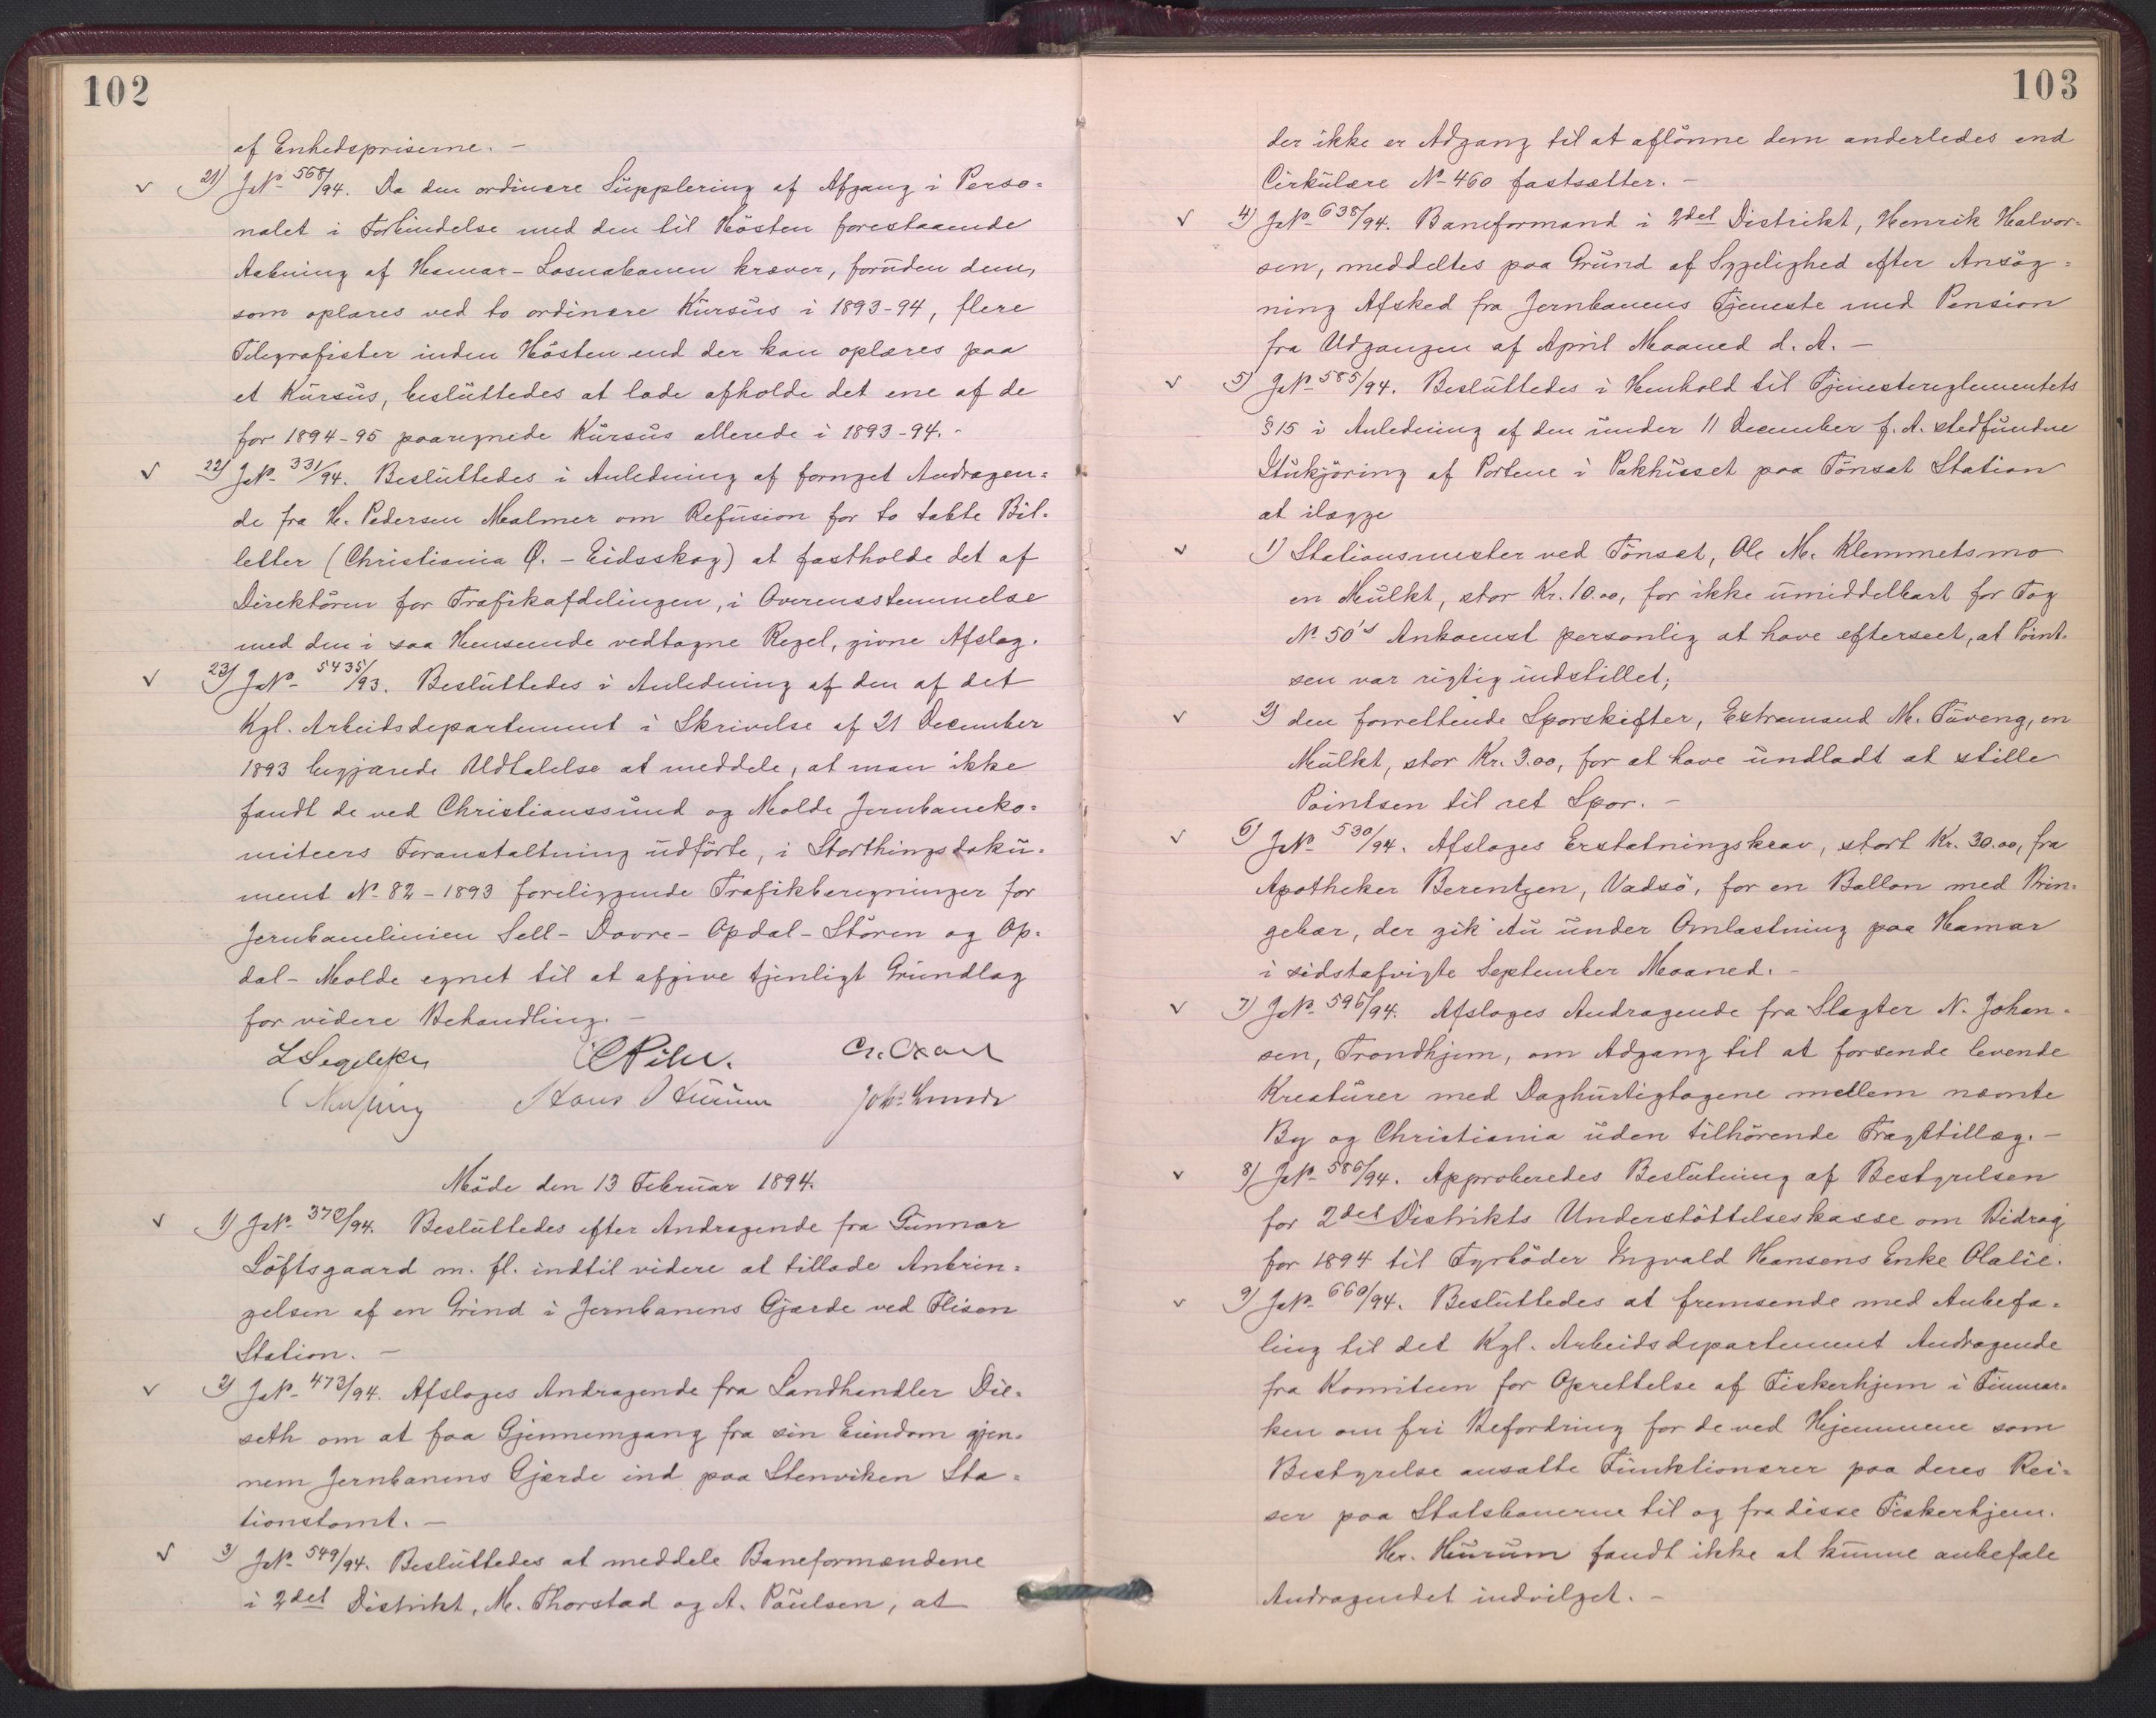 102
af Enhedspriserne. -
21) J.№ 568/94. Da den ordinære Supplering af Afgang i Perso=
nalet i Forbindelse med den til Hösten forestaaende
Aabning af Hamar-Losnabanen kræver, foruden dem,
som oplæres ved to ordinære Kursus i 1893-94, flere
Telegrafister inden Hösten end der kan oplæres paa
et Kursus, besluttedes at lade afholde det ene af de
for 1894-95 paaregnede Kursus allerede i 1893-94. -
22) J.№ 331/94. Besluttedes i Anledning af fornyet Andragen=
de fra H. Pedersen Malmer om Refusion for to tabte Bil-
letter (Christiania Ö. - Eidsskog) at fastholde det af
Direktören for Trafikafdelingen, i Overensstemmelse
med den i saa Henseende vedtagne Regel, givne Afslag.
23) J.№ 5435/93. Besluttedes i Anledning af den af det
Kgl. Arbeidsdepartement i Skrivelse af 21 December
1893 begjærede Udtalelse at meddele, at man ikke
fandt de ved Christianssund og Molde Jernbaneko=
miteers Foranstaltning udförte, i Storthingsdoku-
ment № 82-1893 foreliggende Trafikberegninger for
Jernbanelinien Sell-Dovre-Opdal-Stören og Op=
dal-Molde egnet til at afgive tjenligt Grundlag
for videre Behandling. -
L Segelcke CPihl.
Hans Hurum
Möde den 13 Februar 1894.
1) J.№ 370/94. Besluttedes efter Andragende fra Gunnar
Löftsgaard m. fl. indtil videre at tillade Anbrin=
gelsen af en Grind i Jernbanens Gjærde ved Flisen
Station. -
2) J.№ 473/94. Afsloges Andragende fra Landhandler Die-
seth om at faa Gjennemgang fra sin Eiendom gjen-
nem Jernbanens Gjærde ind paa Stenviken Sta=
tionstomt. -
3) J.№ 549/94. Besluttedes at meddele Baneformændene
i 2det Distrikt, M. Thorstad og A. Paulsen, at
103
der ikke er Adgang til at aflönne dem anderledes end
Cirkulære № 460 fastsætter. -
4) J.№ 638/94. Baneformand i 2det Distrikt, Henrik Halvor-
sen, meddeltes paa Grund af Sygelighed efter Ansög=
ning Afsked fra Jernbanens Tjeneste med Pension
fra Udgangen af April Maaned d. A. -
5) J.№ 585/94. Besluttedes i Henhold til Tjenestereglementets
§ 15 i Anledning af den under 11 December f. A. stedfundne
Itukjöring af Portene i Pakhuset paa Tönset Station
at ilægge
1) Stationsmester ved Tönset, Ole M. Klemmetsmo
en Mulkt, stor Kr. 10.00, for ikke umiddelbart for Tog
№ 50's Ankomst personlig at have efterseet, at Point-
sen var rigtig indstillet;
2) den forrettende Sporskifter, Extramand M. Tuveng, en
Mulkt, stor Kr. 3.00, for at have undladt at stille
Pointsen til ret Spor. -
6) J.№ 530/94. Afsloges Erstatningskrav, stort Kr. 30.00, fra
Apotheker Berentzen, Vadsö, for en Ballon med Brin-
gebær, der gik itu under Omlastning paa Hamar
i sidstafvigte September Maaned. -
7) J.№ 596/94. Afsloges Andragende fra Slagter N. Johan-
sen, Trondhjem, om Adgang til at forsende levende
Kreaturer med Daghurtigtogene mellem nævnte
By og Christiania uden tilhörende Fragttillæg. -
8) J.№ 586/94. Approberedes Beslutning af Bestyrelsen
for 2det Distrikts Understöttelseskasse om Bidrag
for 1894 til Fyrböder Ingvald Hansens Enke Olalie.
9) J.№ 660/94. Besluttedes at fremsende med Anbefa=
ling til det Kgl. Arbeidsdepartement Andragende
fra Komiteen for Oprettelse af Fiskerhjem i Finmar-
ken om fri Befordring for de ved Hjemmene som
Bestyrelse ansatte Funktionærer paa deres Rei=
ser paa Statsbanerne til og fra disse Fiskerhjem.
Hr. Hurum fandt ikke at kunne anbefale
Andragendet indvilget. -